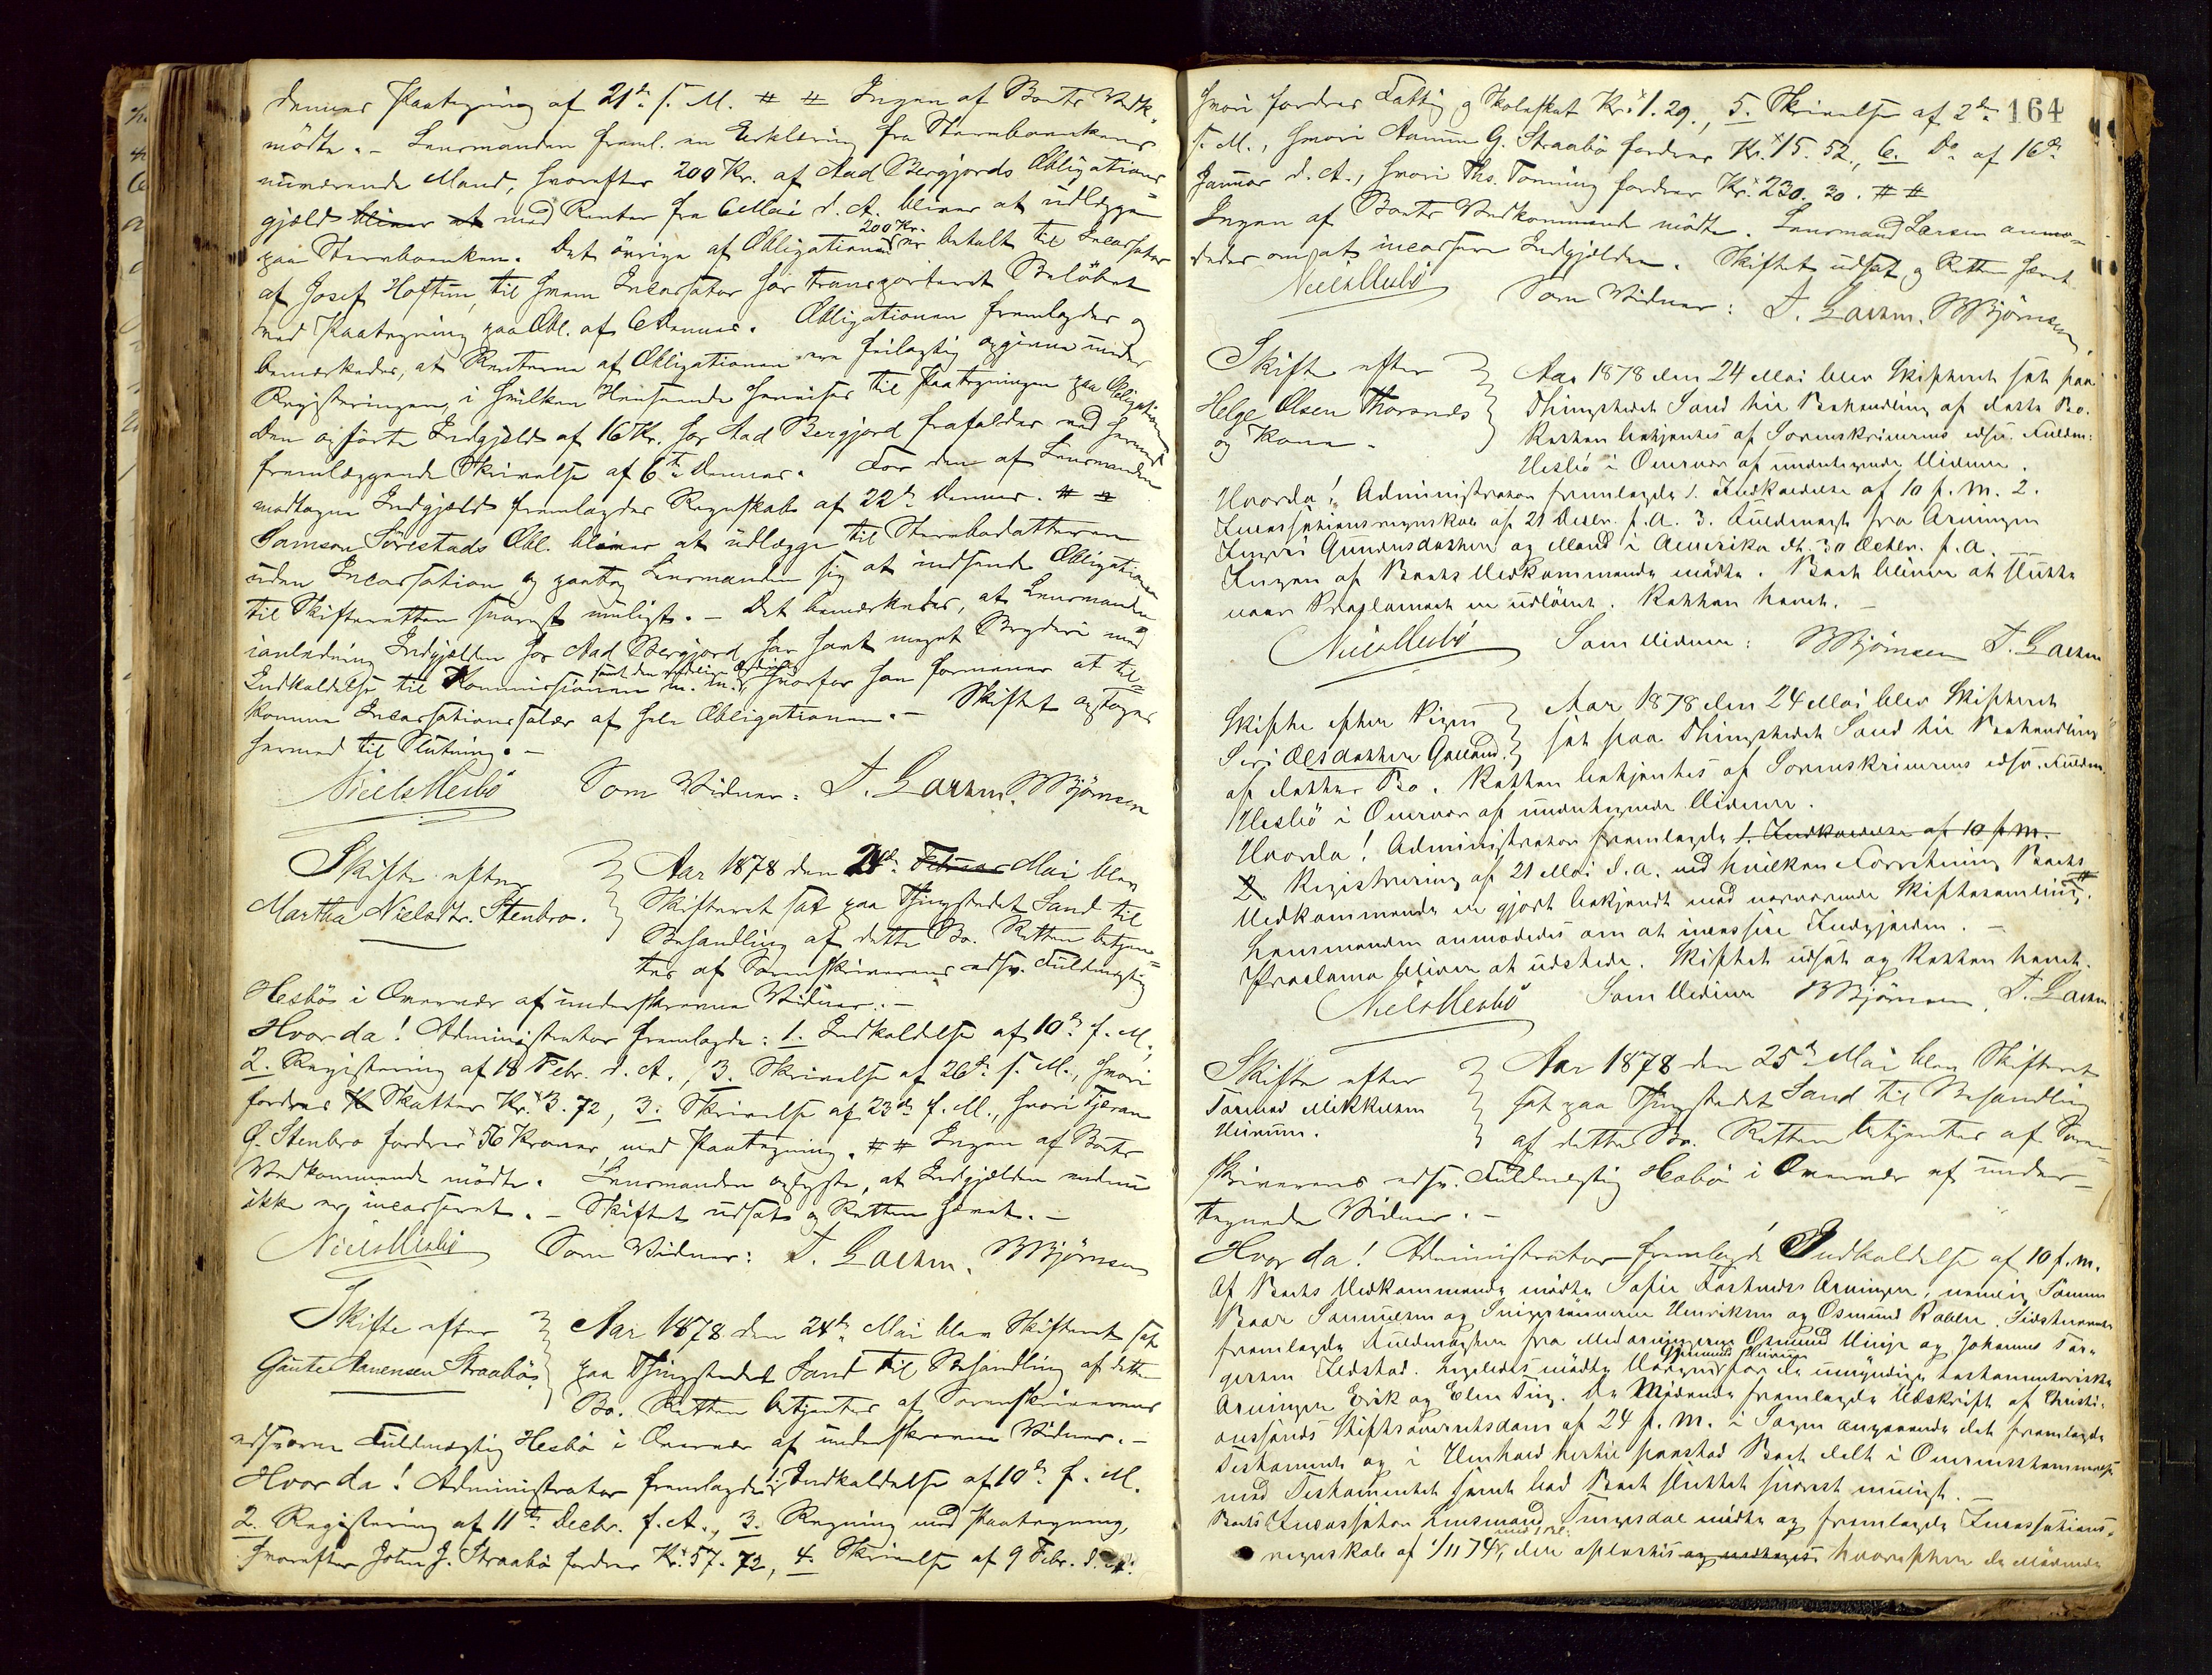 dennes Paategning af 21de s. M. # # Ingen af Boets Vedk.
mödte. - Lensmanden freml. en Erklæring fra Stervboenkens
nuværende Mand, hvorefter 200 Kr. af Aad Bergjords Obligations
gjæld bliver at med Renter fra 6 Mai d. A. bliver at udlægge
paa Stervboenken. Det övrige af Obligationen 200 Kr. er betalt til Incassator
af Josef Hoftun, til hvem Incassator har transporteret Belöbet
ved Paategning paa Obl. af 6 dennes. Obligationen fremlagdes og
bemærkedes, at Renterne af Obligationen er feilagtig opgivne under
Registeringen, i hvilken Henseende henvises til Paategningen paa Obligationen
Den opförte Indgjæld af 16 Kr. hos Aad Bergjord frafaldes ved herved
fremlæggende Skrivelse af 6te dennes. For den af Lensmanden
modtagne Indgjæld fremlagdes Regnskab af 22de dennes. # #
Samson Sörestads Obl. bliver at udlægge til Stervbodatteren
uden Incassation og paatog Lensmanden sig at indsende Obligationen
til Skifteretten snarest muligt. - Det bemærkedes, at Lensmanden
i anledning Indgjælden hos Aad Bergjord har havt meget Bryderi med
Indkaldelse til Kommissionen m. m., hvorfor han formener at til-
komme Incassationssalær af hele Obligationen. - Skiftet optages
hermed til Slutning. -
Niels Hesbö Som Vidner: T. Larsen. M Björnsen
Skifte efter
Martha Nielsdtr. Stenbro.
Aar 1878 den 24de Februar Mai blev
Skifteret sat paa Thingstedet Sand til
Behandling af dette Bo. Retten betjen-
tes af Sorenskriverens edsv. Fuldmægtig
Hesbö i Overvær af underskrevne Vidner. -
Hvorda! Administrator fremlagde: 1. Indkaldelse af 10de f. M.,
2. Registering af 18 Febr. d. A., 3. Skrivelse af 26de s. M., hvori
fordres Skatter Kr. 3.72, 3. Skrivelse af 23de f. M., hvori Tjeran
G. Stenbro fordrer 56 Kroner, med Paategning. # # Ingen af Boets
Vedkommende mödte. Lensmanden oplyste, at Indgjælden endnu
ikke er incasseret. - Skiftet udsat og Retten hævet. -
Niels Hesbö Som Vidner: T. Larsen. M Björnsen
Skifte efter
Gaute Aanensen Straabö,
Aar 1878 den 24de Mai blev Skifteret sat
paa Thingstedet Sand til Behandling af dette
Bo. Retten betjentes af Sorenskriverens
edsvorne Fuldmægtig Hesbö i Overvær af underskrevne Vidner. -
Hvorda! Administrator fremlagde 1. Indkaldelse af 10de f. M.
2. Registering af 11te Decbr. f. A., 3. Regning med Paategning,
hvorefter John J. Straabö fordrer Kr. 57.72, 4. Skrivelse af 9 Febr. d. A.
164
hvori fordres Fattig og Skoleskat Kr. 1.29., 5. Skrivelse af 2den
s. M., hvori Aanen G. Straabö fordrer Kr. 15.52., 6. Do af 16de
Januar d. A., hvori Ths. Tonning fordrer Kr. 230.30. # #
Ingen af Boets Vedkommende mödte. Lensmand Larsen anmo-
dedes om at incassere Indgjælden. Skiftet udsat og Retten hævet.
Niels Hesbö Som Vidner: T. Larsen. M Björnsen
Skifte efter
Helge Olsen Thorsnes
og Kone. -
Aar 1878 den 24 Mai blev Skifteret sat paa
Thingstedet Sand til Behandling af dette Bo.
Retten betjentes af Sorenskriverens edsv. Fuldm:
Hesbö i Overvær af undertegnede Vidner.
Hvorda! Administrator fremlagde 1. Indkaldelse af 10 f. M. 2.
Incassationsregnskab af 21 Decbr. f. A. 3. Fuldmagt fra Arvingen
Ingeri Gundersdatter og Mand i Amerika dt. 30 Octbr. f. A.
Ingen af Boets Vedkommende mödte. Boet bliver at slutte
naar Proclamaet er udlöbet. Retten hævet. -
Niels Hesbö Som Vidner: M Björnsen T. Larsen
Skifte efter Pigen
Siri Olsdatter Galland.
Aar 1878 den 24 Mai blev Skifteret
sat paa Thingstedet Sand til Behandling
af dette Bo. Retten betjentes af Sorenskriverens edsv. Fuldm.
Hesbö i Overvær af undertegnede Vidner.
Hvorda! Administrator fremlagde 1. Indkaldelse af 10 f. M.
2 Registrering af 21 Mai d. A. ved hvilken Forretning Boets
Vedkommende er gjort bekjendt med nærværende Skiftesamling #.
Lensmanden anmodedes om at incassere Indgjælden. -
Proclama bliver at udstede. Skiftet udsat og Retten hævet.
Niels Hesbö Som Vidner M Björnsen, T. Larsen
Skifte efter
Tormod Mikkelsen
Aar 1878 den 25de Mai blev Skifteret
sat paa Thingstedet Sand til Behandling
af dette Bo. Retten betjentes af Soren-
skriverens edsv. Fuldmægtig Hesbö i Overvær af under-
tegnede Vidner. -
Hvorda! Administrator fremlagde Indkaldelse af 10 f. M.
Af Boets Vedkommende mödte Sofie Arvinger, nemlig
Samuelsen og Henriksen og Osmund
fremlagde Fuldmagter fra Medarvingerne Osmund og Johannes Tor-
gersen. Ligeledes mödte Værgen for de umyndige testamentariske
Arvinger Erik og Elen. De Mödende fremlagde Udskrift af Christi-
anssands Stiftsoverretsdom af 24 f. M. i Sagen angaaende det fremlagde
Testament og i Henhold hertil paastod Boet delt i Overensstemmelse
med Testamentet samt bad Boet sluttet snarest muligt. -
Boets Incassator Lensmand mödte og fremlagde Incassations-
regnskab af 1/11 74, der oplæstes og vedtoges hvorefter de Mödende